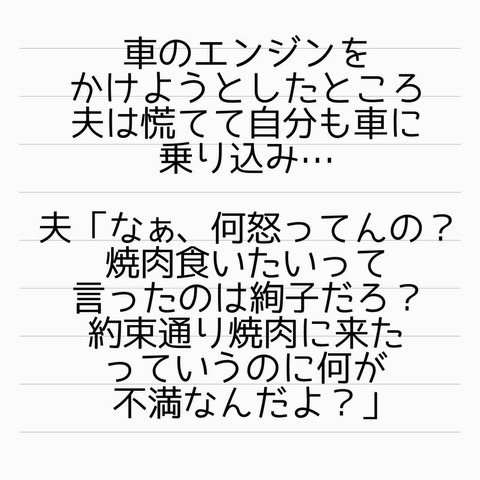 車のエンジンを
かけようとしたところ
夫は慌てて自分も車に
乗り込み…
夫「なぁ、何怒ってんの？
焼肉食いたいって
言ったのは絢子だろ？
約束通り焼肉に来た
っていうのに何が
不満なんだよ？」